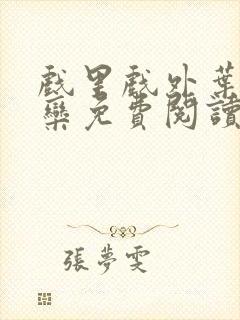 戲里戲外葉
欒免費閱讀
張夢雯